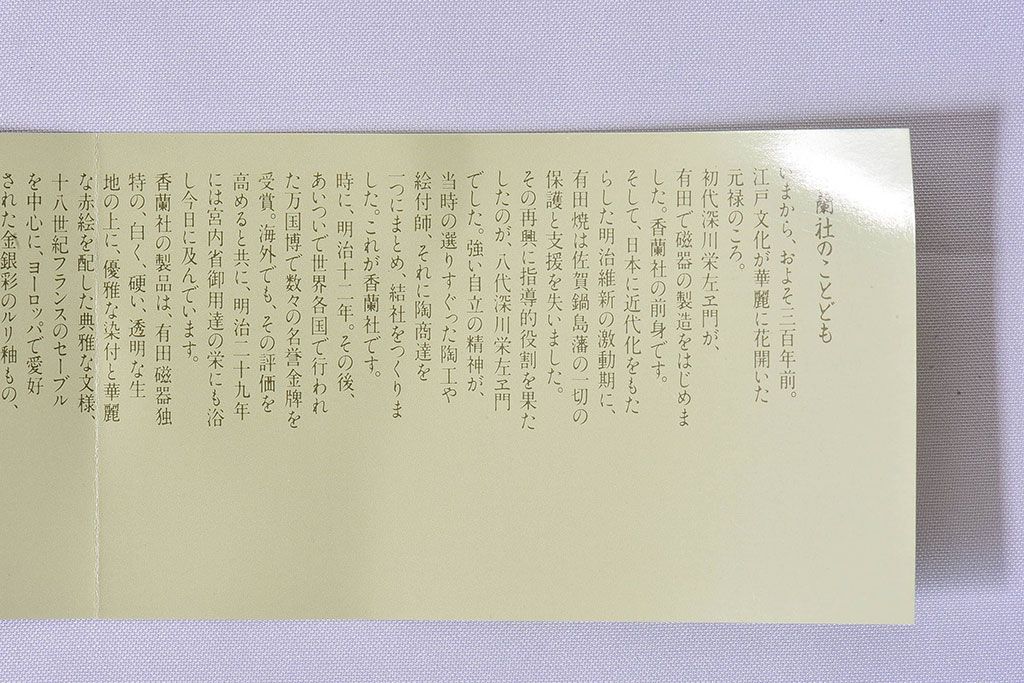 蘭社のことども
いまから、およそ三百年前。
江戸文化が華麗に花開いた
元禄のころ。
初代深川栄左ヱ門が、
有田で磁器の製造をはじめま
した。香蘭社の前身です。
そして、日本に近代化をもた
らした明治維新の激動期に、
有田焼は佐賀鍋島藩の一切の
保護と支援を失いました。
その再興に指導的役割を果た
したのが、八代深川栄左ヱ門
でした。強い自立の精神が、
当時の選りすぐった陶工や
絵付師、それに陶商達を
一つにまとめ、結社をつくりま
した。これが香蘭社です。
時に、明治十二年。その後、
あいついで世界各国で行われ
た万国博で数々の名誉金牌を
受賞。海外でも、その評価を
高めると共に、明治二十九年
には宮内省御用達の栄にも浴
し今日に及んでいます。
香蘭社の製品は、有田磁器独
特の、白く、硬い、透明な生
地の上に、優雅な染付と華麗
な赤絵を配した典雅な文様、
十八世紀フランスのセーブル
を中心に、ヨーロッパで愛好
された金銀彩のルリ釉もの、